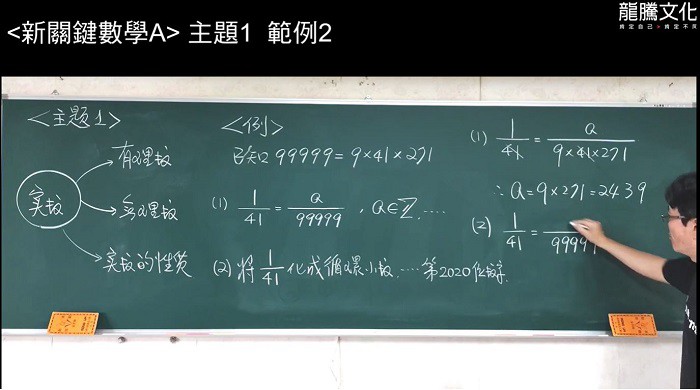 <新關鍵數學A> 主題1 範例2
龍騰文化
肯定自己・肯定不同
<主題1>
實數
有理數
無理數
實數的性質
<例>
已知 99999=9×41×271
(1) 1/41 = a/99999 , a∈Z.....
(2) 將 1/41 化成循環小數.....第2020位數字.
(1) 1/41 = a/(9×41×271)
∴ a=9×271=2439
(2) 1/41 = /9999